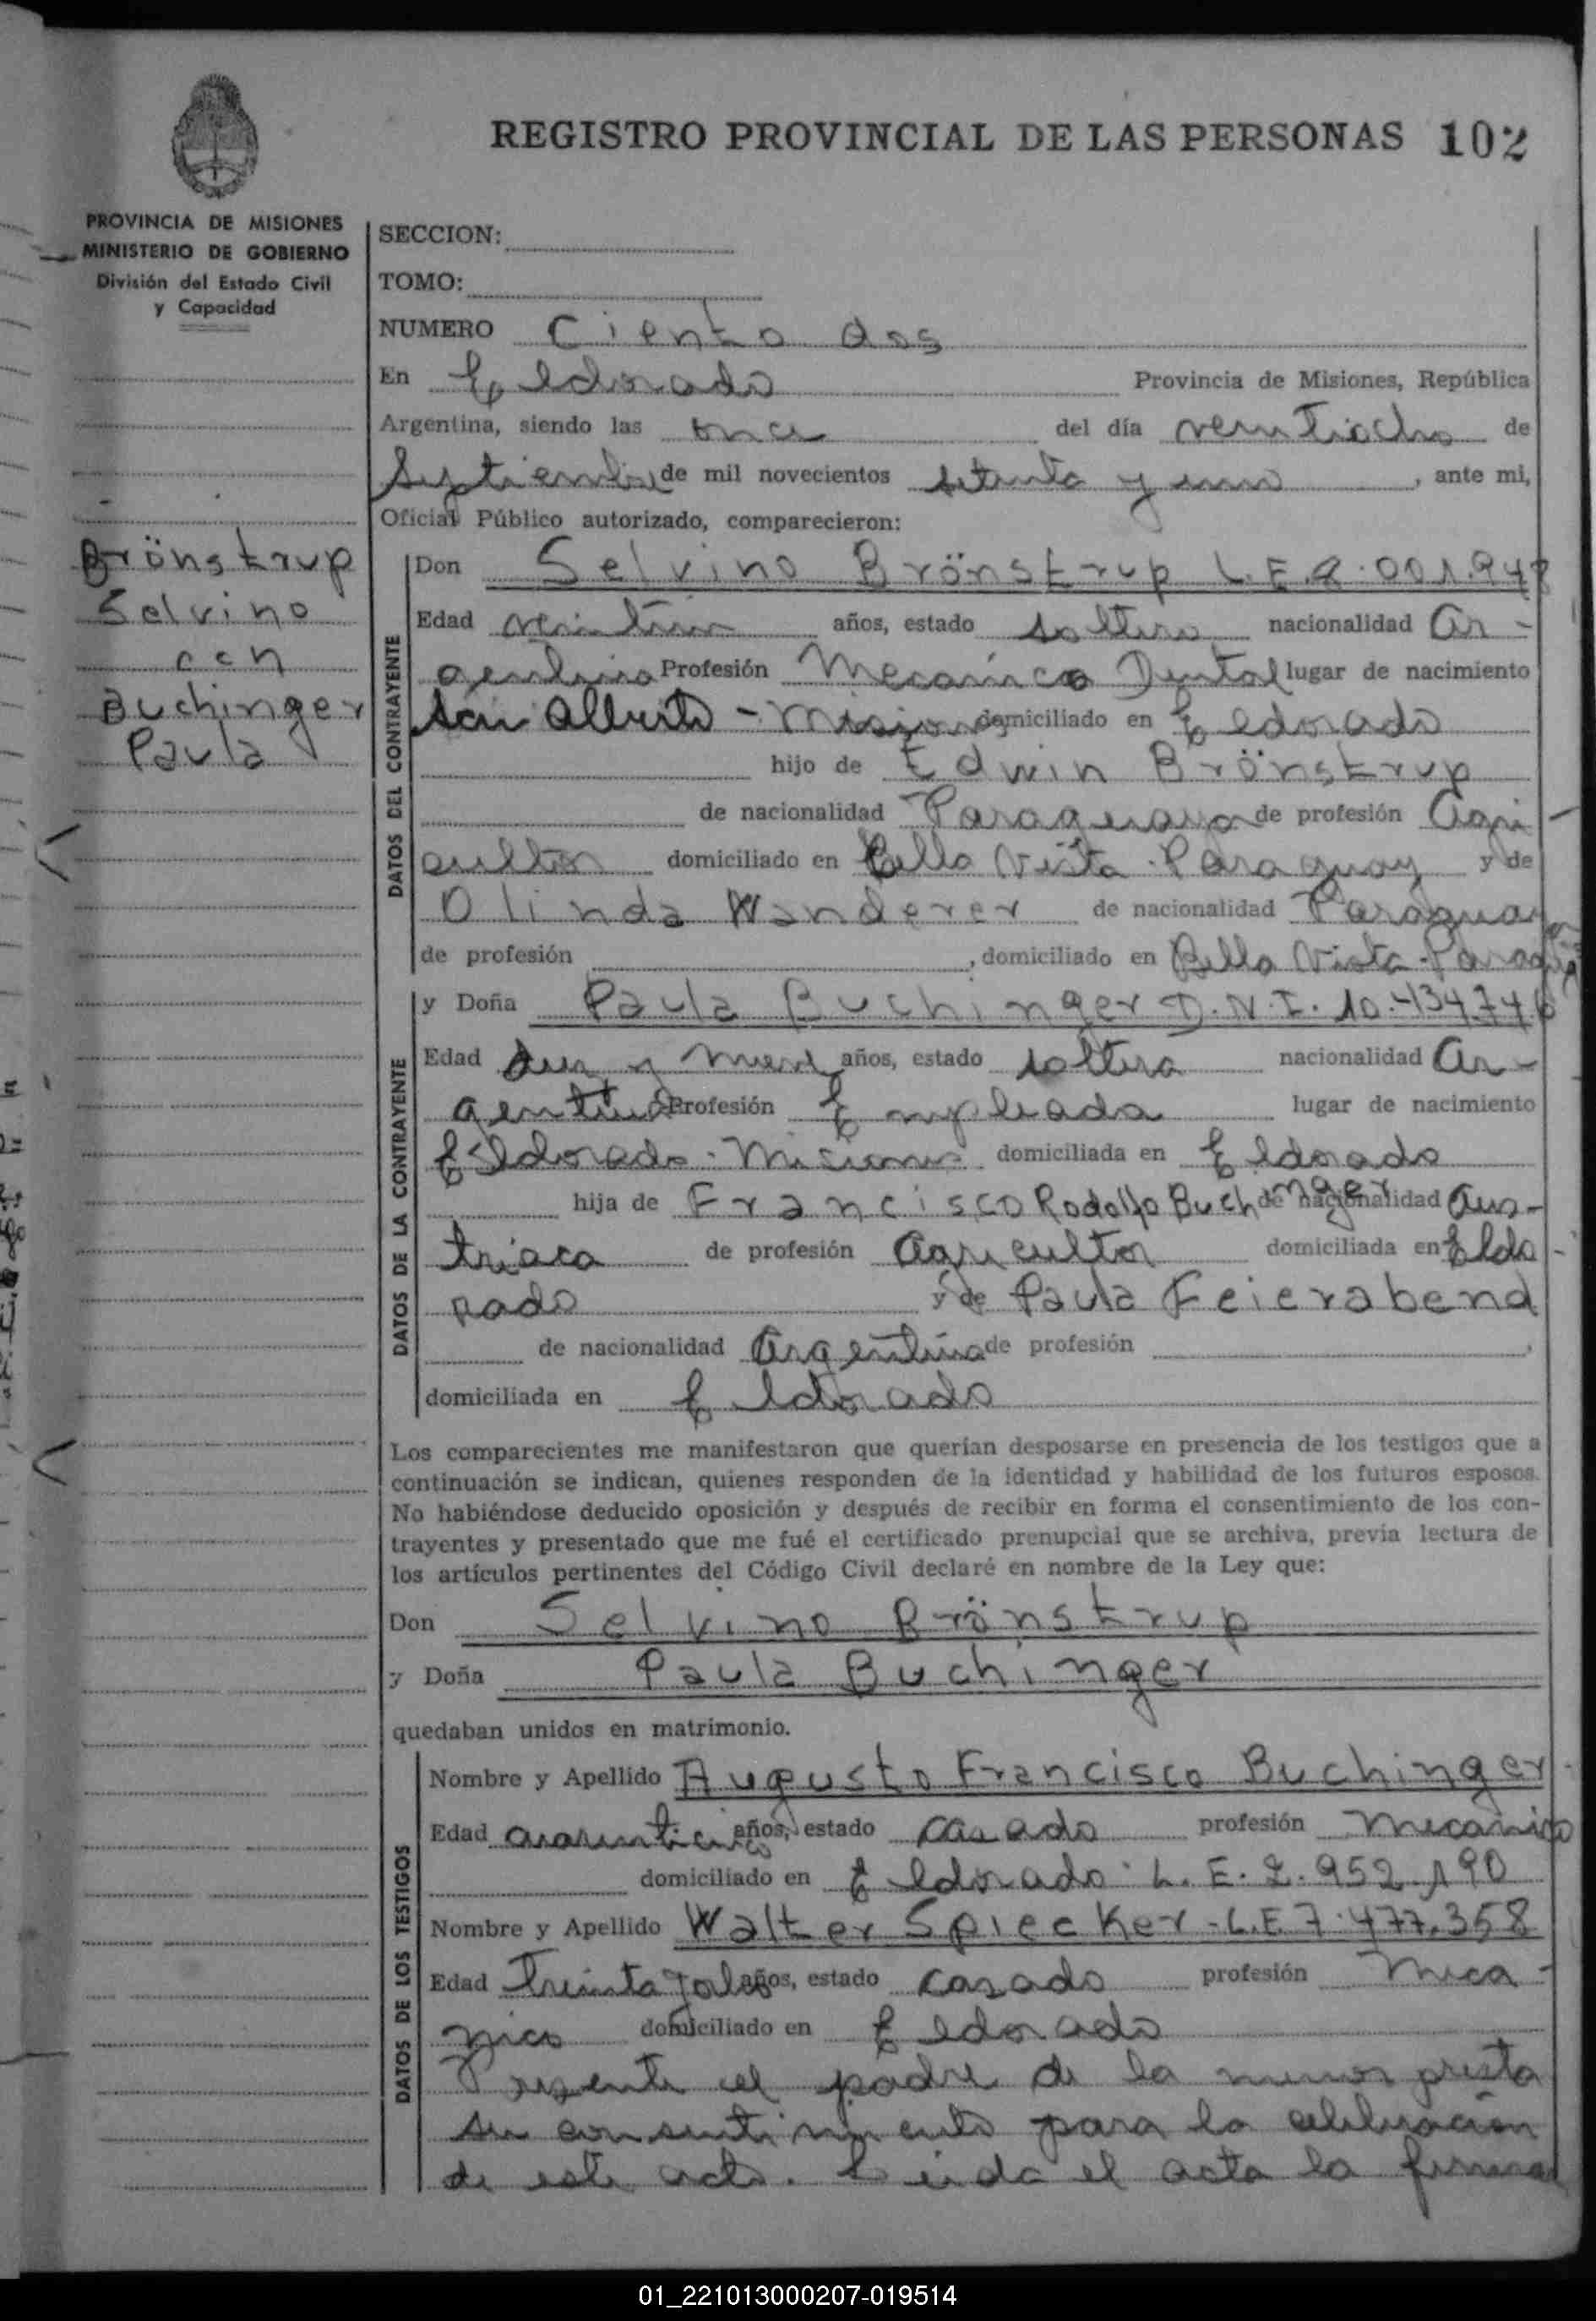 REGISTRO PROVINCIAL DE LAS PERSONAS 102
PROVINCIA DE MISIONES
MINISTERIO DE GOBIERNO
División del Estado Civil
y Capacidad
Brönstrup
Selvino
con
Buchinger
Paula
SECCION:
TOMO:
NUMERO Ciento dos
En Eldorado Provincia de Misiones, República
Argentina, siendo las once del día veintiocho de
Septiembre de mil novecientos setenta y uno, ante mi,
Oficial Público autorizado, comparecieron:
DATOS DEL CONTRAYENTE
Don Selvino Brönstrup L.E. 8.001.948
Edad veintiun años, estado soltero nacionalidad Ar-
gentino Profesión Mecánico Dental lugar de nacimiento
San Alberto - Misiones domiciliado en Eldorado
hijo de Edwin Brönstrup
de nacionalidad Paraguaya de profesión Agri-
cultor domiciliado en Bella Vista - Paraguay y de
Olinda Wanderer de nacionalidad Paraguaya
de profesión , domiciliado en Bella Vista - Paraguay
DATOS DE LA CONTRAYENTE
y Doña Paula Buchinger D.N.I. 10.434.746
Edad diez y nueve años, estado soltera nacionalidad Ar-
gentina Profesión Empleada lugar de nacimiento
Eldorado - Misiones domiciliada en Eldorado
hija de Francisco Rodolfo Buchinger de nacionalidad Aus-
triaca de profesión Agricultor domiciliada en Eldo-
rado y de Paula Feierabend
de nacionalidad Argentina de profesión ,
domiciliada en Eldorado
Los comparecientes me manifestaron que querían desposarse en presencia de los testigos que a
continuación se indican, quienes responden de la identidad y habilidad de los futuros esposos.
No habiéndose deducido oposición y después de recibir en forma el consentimiento de los con-
trayentes y presentado que me fué el certificado prenupcial que se archiva, previa lectura de
los artículos pertinentes del Código Civil declaré en nombre de la Ley que:
Don Selvino Brönstrup
y Doña Paula Buchinger
quedaban unidos en matrimonio.
DATOS DE LOS TESTIGOS
Nombre y Apellido Augusto Francisco Buchinger
Edad cuarenticinco años, estado casado profesión Mecánico
domiciliado en Eldorado - L.E. 2.952.190
Nombre y Apellido Walter Spiecker - L.E 7.477.358
Edad Treinta y años, estado casado profesión Meca-
nico domiciliado en Eldorado
Presente el padre de la menor presta
su consentimiento para la celebración
de este acto. Leida el acta la firman
01_221013000207-019514